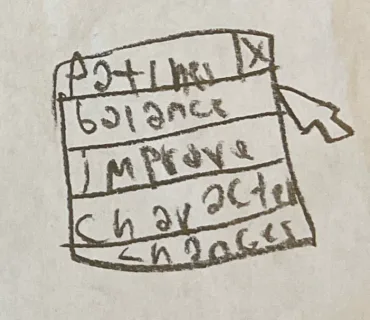 Patches X
balance
improve
character
changes